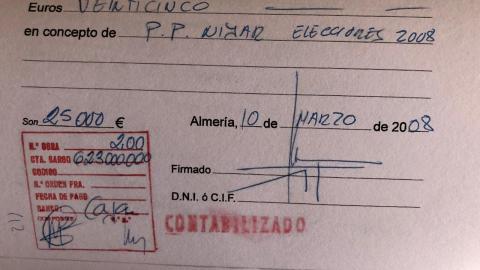 Euros VEINTICINCO
en concepto de P.P. NIJAR ELECCIONES 2008
Son 25000 €
Almería, 10 de MARZO de 2008
N.º OBRA 2,00
CTA. CARGO 623000000
CODIGO
N.º ORDEN FRA.
FECHA DE PAGO
BANCO: Caja
Firmado
D.N.I. ó C.I.F.
CONTABILIZADO